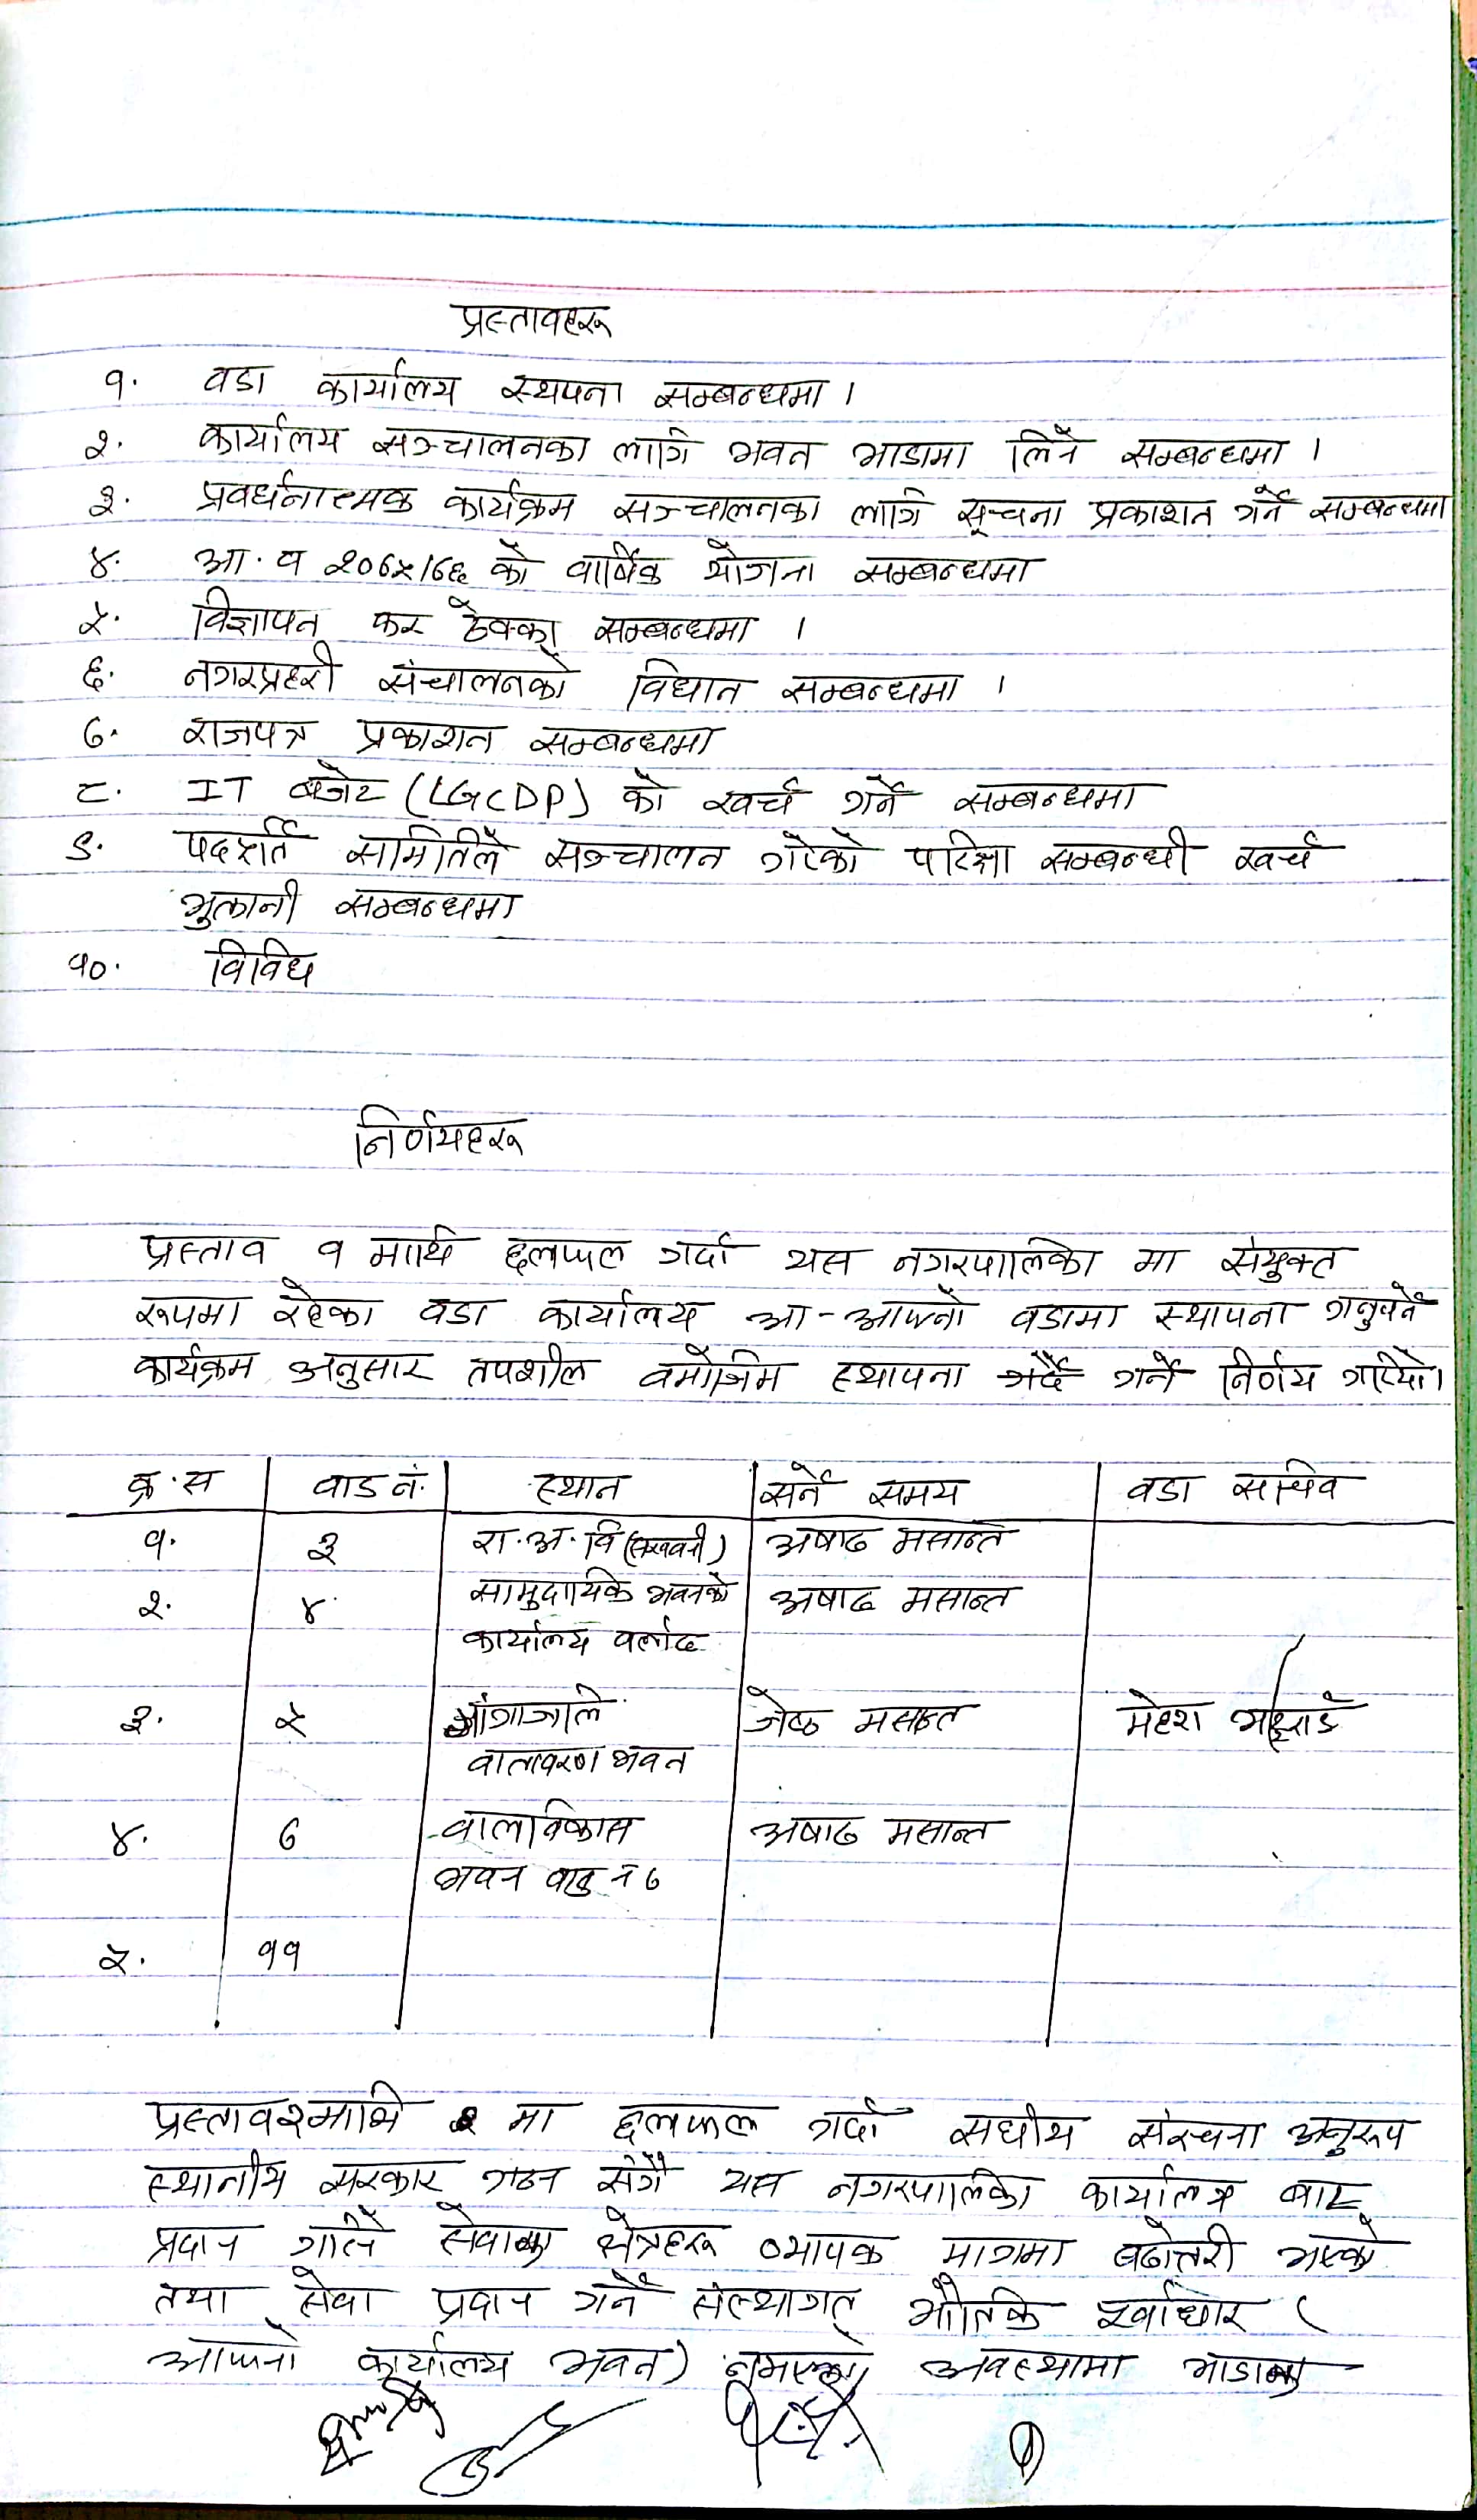 प्रस्तावहरू
१. वडा कार्यालय स्थपना सम्बन्धमा ।
२. कार्यालय सञ्चालनका लागि भवन भाडामा लिने सम्बन्धमा ।
३. प्रवर्धनात्मक कार्यक्रम सञ्चालनका लागि सूचना प्रकाशन गर्ने सम्बन्धमा
४. आ.व २०७५/७६ को वार्षिक योजना सम्बन्धमा
५. विज्ञापन कर ठेक्का सम्बन्धमा ।
६. नगरप्रहरी संचालनको विधान सम्बन्धमा ।
७. राजपत्र प्रकाशन सम्बन्धमा
८. IT बजेट (LGCDP) को खर्च गर्ने सम्बन्धमा
९. पदपूर्ति समितिले सञ्चालन गरेको परिक्षा सम्बन्धी खर्च
भुक्तानी सम्बन्धमा
१०. विविध
निर्णयहरू
प्रस्ताव १ माथि छलफल गर्दा यस नगरपालिका मा संयुक्त
रूपमा रहेका वडा कार्यालय आ-आफ्नो वडामा स्थापना गर्नुपर्ने
कार्यक्रम अनुसार तपशील बमोजिम स्थापना गर्दै गर्ने निर्णय गरियो।
क्र.स वाड नं. स्थान सर्ने समय वडा सचिव
१. ३ रा.अ.वि अषाढ मसान्त
२. ४ सामुदायिक भवनको अषाढ मसान्त
कार्यालय
३. ५ जेष्ठ मसान्त महेश
वातावरण भवन
४. ७ बालविकास अषाढ मसान्त
भवन वाड नं ७
५. ११
प्रस्ताव २ माथि मा छलफल गर्दा संघीय संरचना अनुरूप
स्थानीय सरकार गठन संगै यस नगरपालिका कार्यालय बाट
प्रदान गरिने सेवाका क्षेत्रहरू व्यापक मात्रामा बढोत्तरी भएको
तथा सेवा प्रदान गर्ने संस्थागत भौतिक पूर्वाधार (
आफ्नो कार्यालय भवन) नभएको अवस्थामा भाडाका